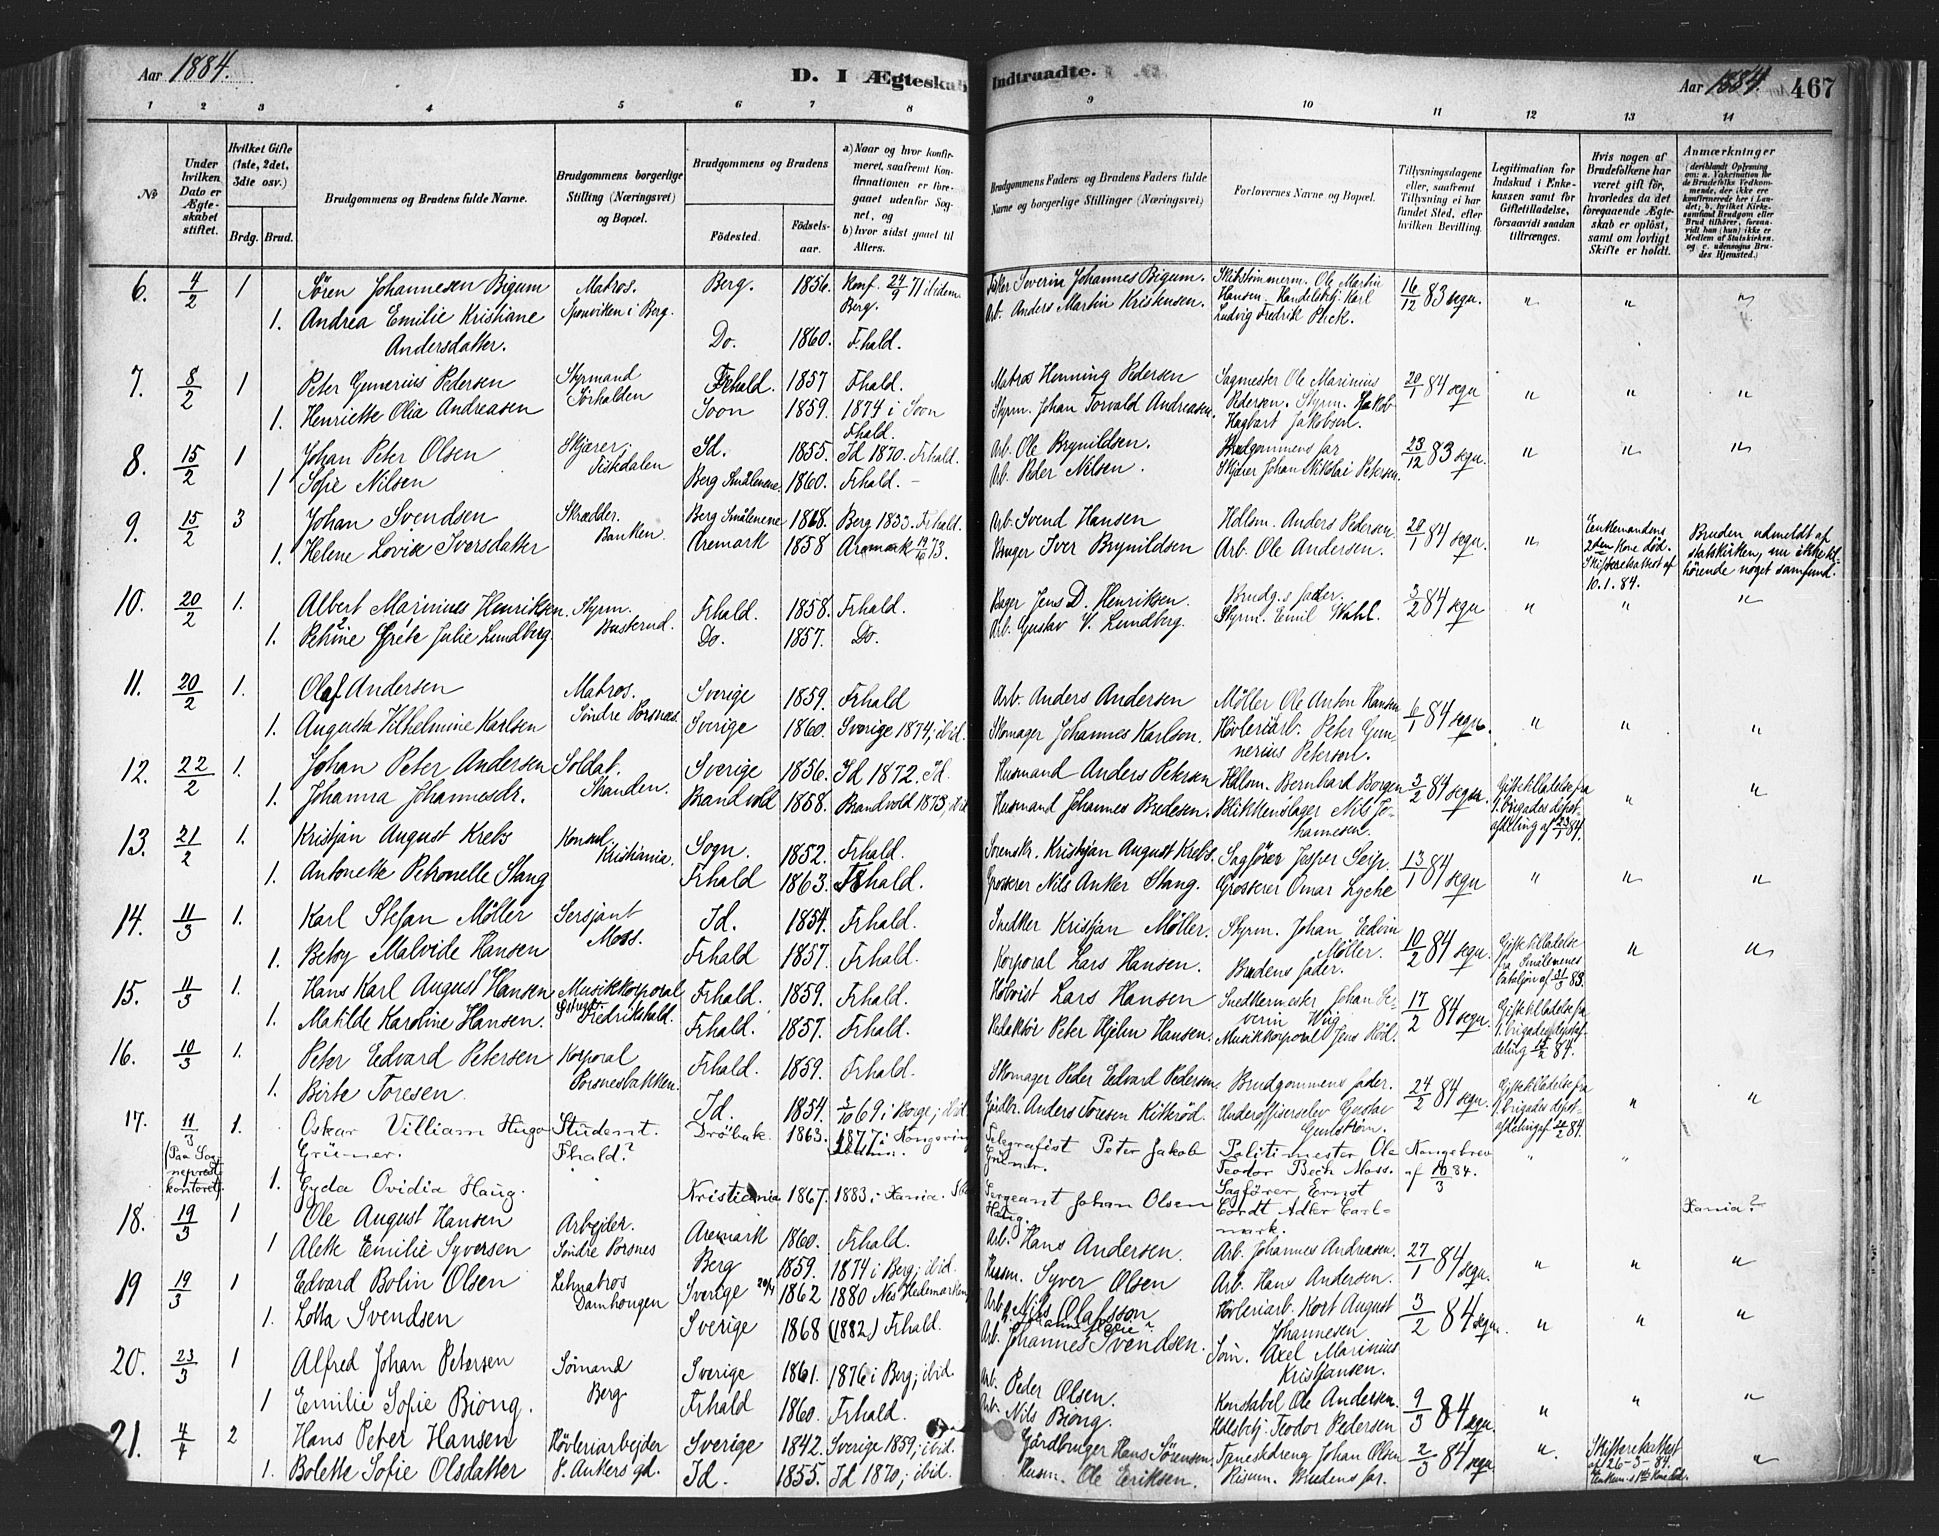 Aar 1884.
D. I Ægteskab Indtraadte.
Aar 1884.
467
1 2 3 4 5 6 7 8 9 10 11 12 13 14
No
Under hvilken Dato er Ægteskabet stiftet.
Hvilket Gifte (1ste, 2det, 3die osv.)
Brdg. Brud.
Brudgommens og Brudens fulde Navne.
Brudgommens borgerlige Stilling (Næringsvei) og Bopæl.
Brudgommens og Brudens
Fødested.
Fødselsaar.
a) Naar og hvor konfirmeret, saafremt Konfirmationen er foregaaet udenfor Sognet, og
b) hvor sidst gaaet til Alters.
Brudgommens Faders og Brudens Faders fulde Navne og borgerlige Stillinger (Næringsvei)
Forlovernes Navne og Bopæl.
Tillysningsdagene eller, saafremt Tillysning ei har fundet Sted, efter hvilken Bevilling.
Legitimation for Indskud i Enkekassen samt for Giftetilladelse, forsaavidt saadan tiltrænges.
Hvis nogen af Brudefolkene har været gift før, hvorledes da det foregaaende Ægteskab er opløst, samt om lovligt Skifte er holdt.
Anmærkninger
6. 4/2 1 Søren Johannesen Bigum Matros. Berg. 1856. Konf. 24/9 71 ibidem Severin Johannes Bigum. Skibstømmerm. Ole Martin 16/12 83 segu. " " "
1. Andrea Emilie Kristiane Sponviken i Berg. Berg. Arb. Anders Martin Kristensen. Hansen Handelsbtj. Karl
Andersdatter. Do. 1860. Frhald. Ludvig Fredrik Plick.
7. 8/2 1 Peter Gunerius Pedersen Styrmand Frhald. 1857 Fhald. Matros Henning Pedersen Sagmester Ole Marinius 20/1 84 segu " " "
1. Henriette Olia Andreasen Sørhalden Soon 1859. 1874 i Soon Styrm. Johan Torvald Andreasen. Pedersen. Styrm. Jakob
Fhald. Hagbart Jakobsen.
8. 15/2 1 Johan Peter Olsen Skjærer. Id. 1855. Id 1870. Frhald. Arb. Ole Brynildsen. Brudgommens far 23/12 83 segu. " " "
1 Sofie Nilsen Tistedalen Berg Smålenene. 1860. Frhald. Arb. Peder Nilsen. Skjærer Johan Nikolai Petersen.
9. 15/2 3 Johan Svendsen Skrædder. Berg Smålenene 1818. Berg 1833. Frhald. Arb. Svend Hansen Hdlsm. Anders Pedersen 20/1 84 segu. " Enkemandens 2den Kone død. Skifteretsattest af 10.1.84. Bruden udmeldt af statskirken, nu ikke tilhørende noget samfund.
1. Helene Lovise Iversdatter Banken. Aremark 1858 Aremark 73. Bruger Iver Brynildsen Arb. Ole Andersen.
10. 20/2 1. Albert Marinius Henriksen. Styrm. Frhald. 1858. Frhald. Bager Jens D. Henriksen. Brudg.s fader. 3/2 84 segu " " "
1. Petrine Grete Julie Lundberg. Busterud. Do. 1857. Do. Arb. Gustav V. Lundberg. Styrm. Emil Wahl.
11. 20/2 1. Olaf Andersen Matros. Sverige 1859. Frhald Arb. Anders Andersen Møller Ole Anton Hansen 6/1 84 segu. " " "
1. Augusta Vilhelmine Karlsen Søndre Porsnæs. Sverige 1860. Sverige 1874; ibid. Skomager Johannes Karlson. Høvleriarb. Peter Gunnerius Petersen.
12. 22/2 1. Johan Peter Andersen Soldat. Sverige 1856. Id 1872. Id. Husmand Anders Petersen Hdlsm. Bernhard Borgen 3/2 84 segu. Giftetilladelse fra 1. brigades depotafdeling af 23/1 84. " "
1. Johanna Johannesdr. Stranden. Brandvold 1858. Brandvold 1873; ibid Husmand Johannes Bredesen. Blikkenslager Nils Johannesen.
13. 21/2 1. Kristjan August Krebs Konsul Sogn. 1852. Frhald. Sorenskr. Kristjan August Krebs. Sagfører Jesper Seip. 13/1 84 segu " " "
1. Antonette Petronelle Stang Kristiania. Frhald 1863. Frhald. Grosserer Nils Anker Stang. Grosserer Omar Lyche
14. 11/3 1. Karl Stefan Møller Sersjant Id. 1854. Frhald. Snedker Kristjan Møller. Styrm. Johan Edvin Møller. 10/2 84 segu. Giftetilladelse fra Smålenenes bataljon af 3/1 83. " "
1. Betsy Malvide Hansen Moss. Frhald 1857. Frhald. Korporal Lars Hansen. Brudens fader.
15. 11/3 1. Hans Karl August Hansen Musikkorporal Frhald. 1859. Frhald. Lars Hansen Snedkermester Johan Severin Wiig 17/2 84 segu. Giftetilladelse fra 1. brigades depotafdeling 84.
1. Matilde Karoline Hansen. Fredrikshald. Frhald. 1857. Frhald. Redaktør Peter Hjelm Hansen. Musikkorporal Jens Rød.
16. 10/3 1. Peter Edvard Petersen Korporal Frhald. 1859. Frhald. Skomager Peder Edvard Pedersen. Brudgommens fader. 24/2 84 segu. Giftetilladelse fra 1. brigades depotafdeling af 84. " "
1. Birte Toresen. Porsnesbakken. Id. 1854. 69 i Borge; ibid Gårdbr. Anders Toresen Kitterød. Underofficerselev Gustav
17. 11/3 1. Oskar Villiam Hugo Student. Drøbak. 1863. 1877 i Kongsvinger Telegrafist Peter Jakob Politimester Ole Kongebrev " "
(Paa Sogneprestkontoret) Grüner. Fhald? Grüner. Teodor Bech Moss. af 10/3 84.
1. Gyda Ovidia Haug. Kristiania 1867. 1883 i Xania. Sergeant Johan Olsen Haug. Sagfører Ernst Cordt Adler Carlmark. Xania?
18. 19/3 1 Ole August Hansen Arbejder. Aremark 1860. Frhald. Arb. Hans Andersen. Arb. Johannes Andreasen. 27/1 84 segu. " " "
1 Alette Emilie Syversen Søndre Porsnes Berg 1859. 1874 i Berg; ibid. Husm. Syver Olsen Arb. Hans Andersen.
19 19/3 1 Edvard Bolin Olsen Letmatros Sverige 20/4 1862 1880 Nes Hedemarken Arb. Nils Olafsson Høvleriarb. Kort August Johannesen 3/2 84 segu. " " "
1. Lotta Svendsen Damhougen Sverige 1868 (1882) Frhald. Arb. Johannes Svendsen. Søm. Axel Marinius Kristjansen.
20. 23/3 1 Alfred Johan Petersen Sømand Sverige 1861. 1876 i Berg; ibid. Arb. Peder Olsen. Konstabel Ole Andersen. 9/3 84 segu. " " "
1 Emilie Sofie Biong. Berg Frhald 1860. Frhald. Arb. Nils Biong. Hdlsbtj. Teodor Pedersen
21. 4/4 2 Hans Peter Hansen Høvleriarbejder Sverige 1842. Sverige 1859; ibid. Gårdbruger Hans Sørensen. Tjenestedreng Johan Olsen 2/3 84 segu " Skifteretsattest af 26-3-84. Enkem.s 1ste Kone død. "
1. Bolette Sofie Olsdatter P. Ankers gd. Id. 1855. Id 1870; ibid. Husm. Ole Eriksen. Risum. Brudens far.